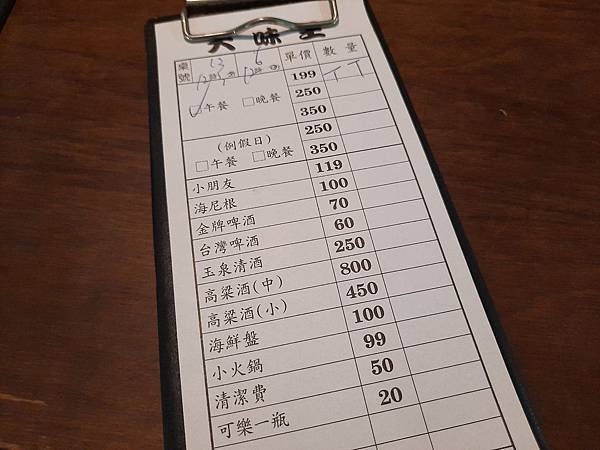 大味王
桌號 13 單價 數量
199
☑午餐 □晚餐 250
350
(例假日) 250
□午餐 □晚餐 350
小朋友 119
海尼根 100
金牌啤酒 70
台灣啤酒 60
玉泉清酒 250
高梁酒(中) 800
高梁酒(小) 450
海鮮盤 100
小火鍋 99
清潔費 50
可樂一瓶 20